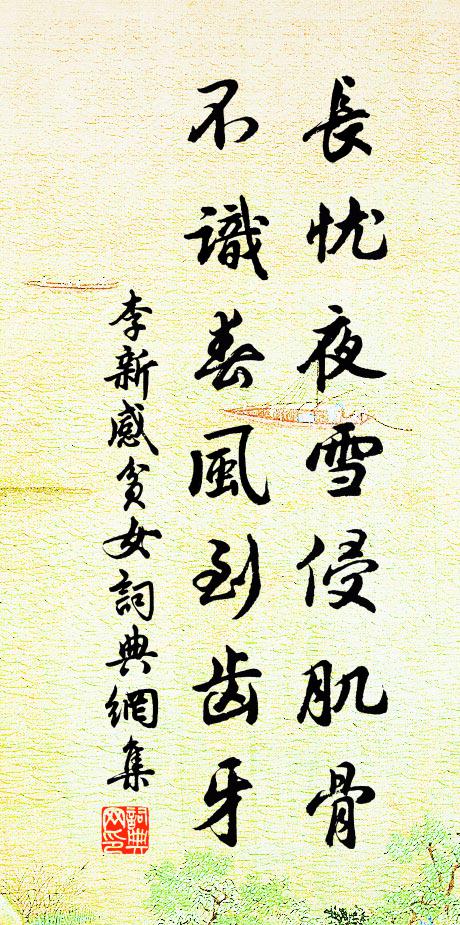 長忧夜雪侵肌骨
不識春風到齿牙
李新感贫女詞典網集
詞典
网印